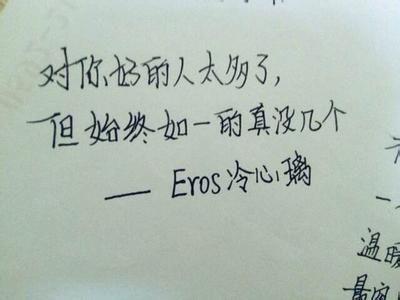 对你好的人太多了，
但始终如一的真没几个
—— Eros冷心璃
温暖